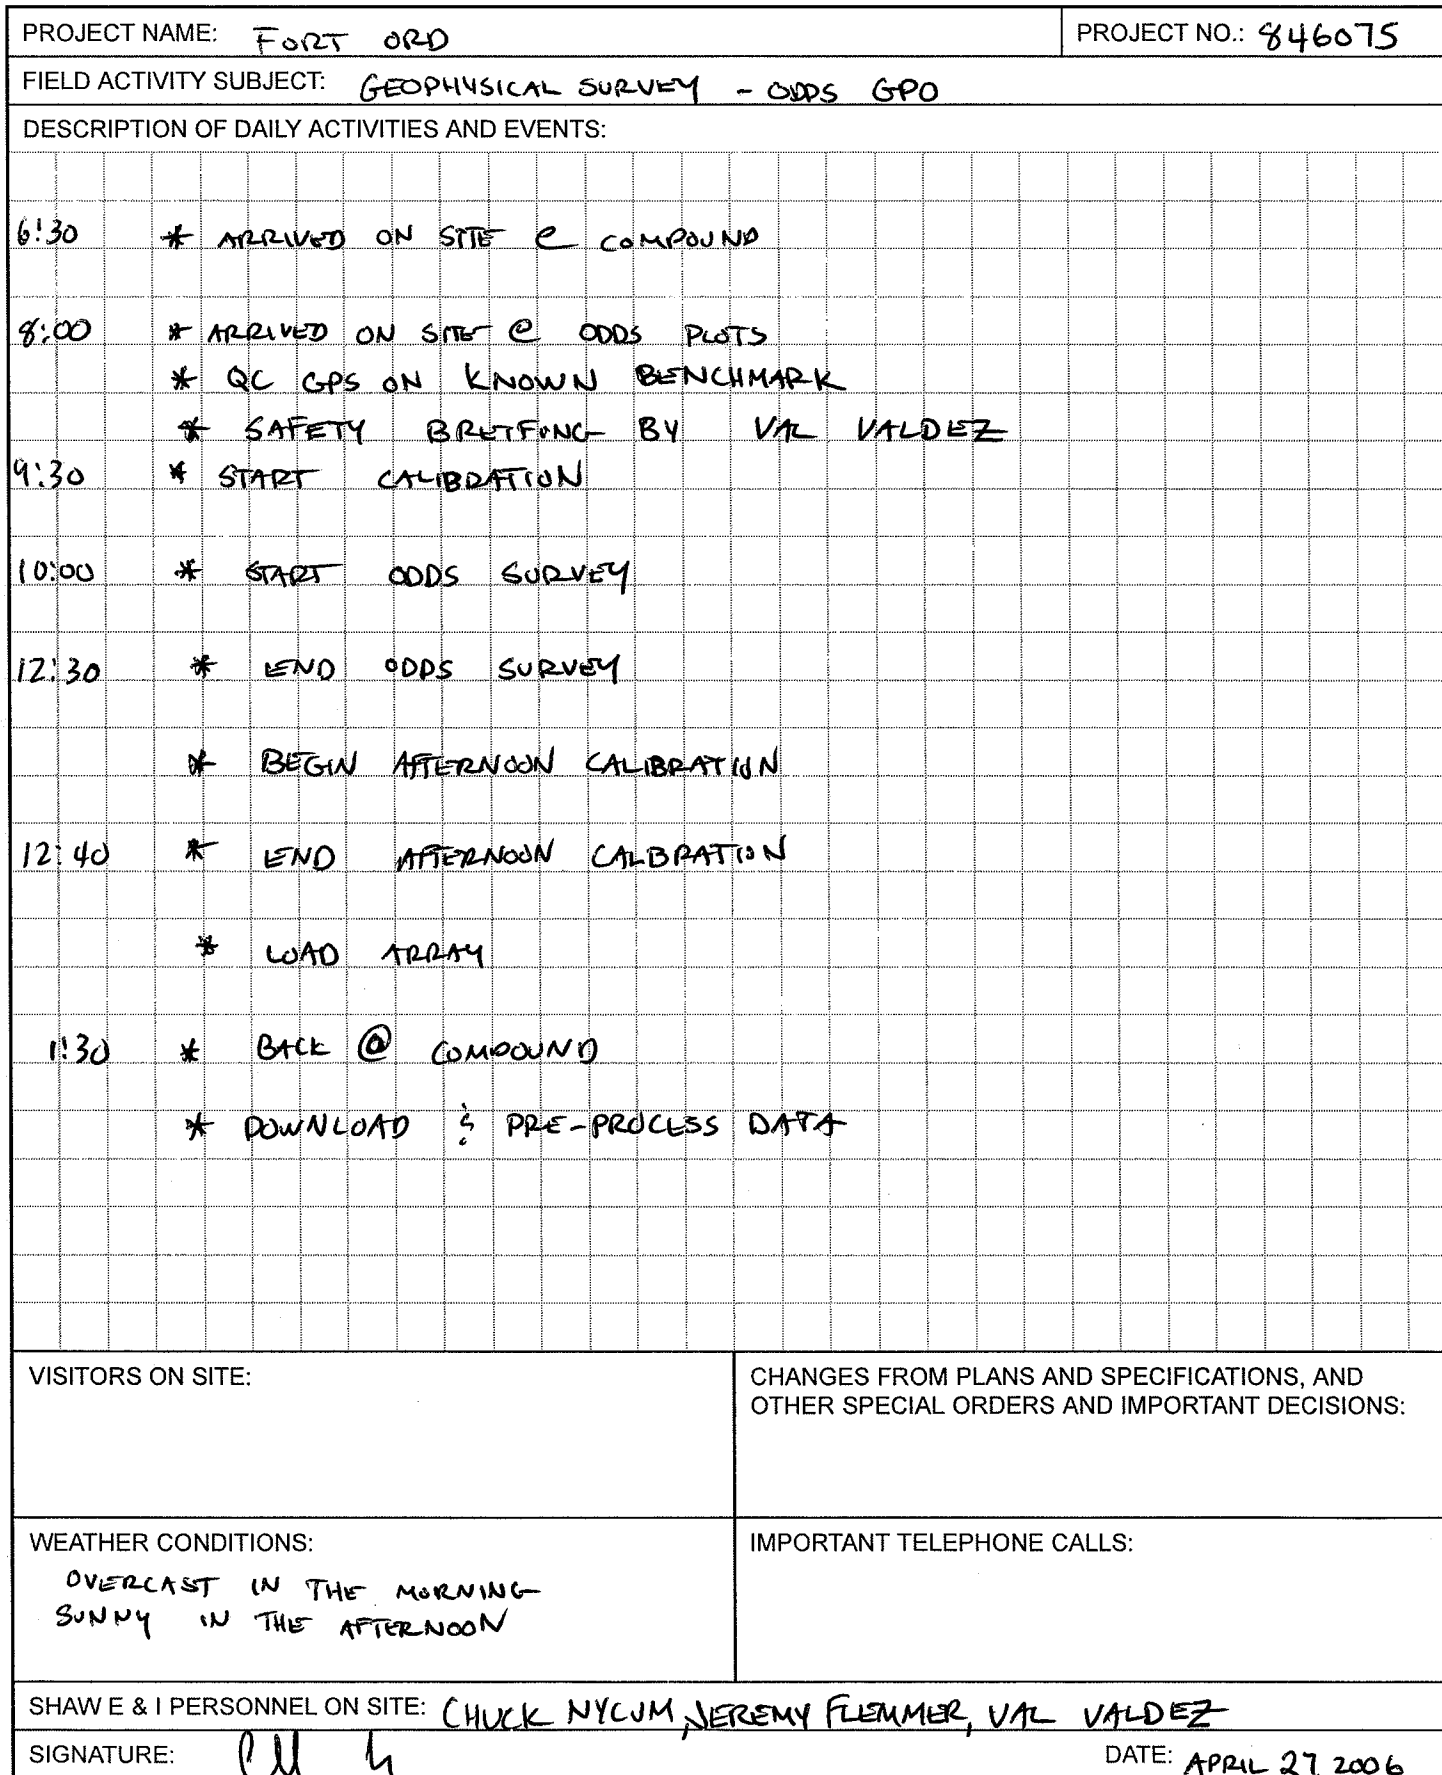 PROJECT NAME: FORT ORD PROJECT NO.: 846075
FIELD ACTIVITY SUBJECT: GEOPHYSICAL SURVEY - ODDS GPO
DESCRIPTION OF DAILY ACTIVITIES AND EVENTS:
6:30 * ARRIVED ON SITE @ COMPOUND
8:00 * ARRIVED ON SITE @ ODDS PLOTS
* QC GPS ON KNOWN BENCHMARK
* SAFETY BREIFING BY VAL VALDEZ
9:30 * START CALIBRATION
10:00 * START ODDS SURVEY
12:30 * END ODDS SURVEY
* BEGIN AFTERNOON CALIBRATION
12:40 * END AFTERNOON CALIBRATION
* LOAD ARRAY
1:30 * BACK @ COMPOUND
* DOWNLOAD & PRE-PROCESS DATA
VISITORS ON SITE:
CHANGES FROM PLANS AND SPECIFICATIONS, AND
OTHER SPECIAL ORDERS AND IMPORTANT DECISIONS:
WEATHER CONDITIONS:
OVERCAST IN THE MORNING
SUNNY IN THE AFTERNOON
IMPORTANT TELEPHONE CALLS:
SHAW E & I PERSONNEL ON SITE: CHUCK NYCUM, JEREMY FLEMMER, VAL VALDEZ
SIGNATURE: DATE: APRIL 27 2006